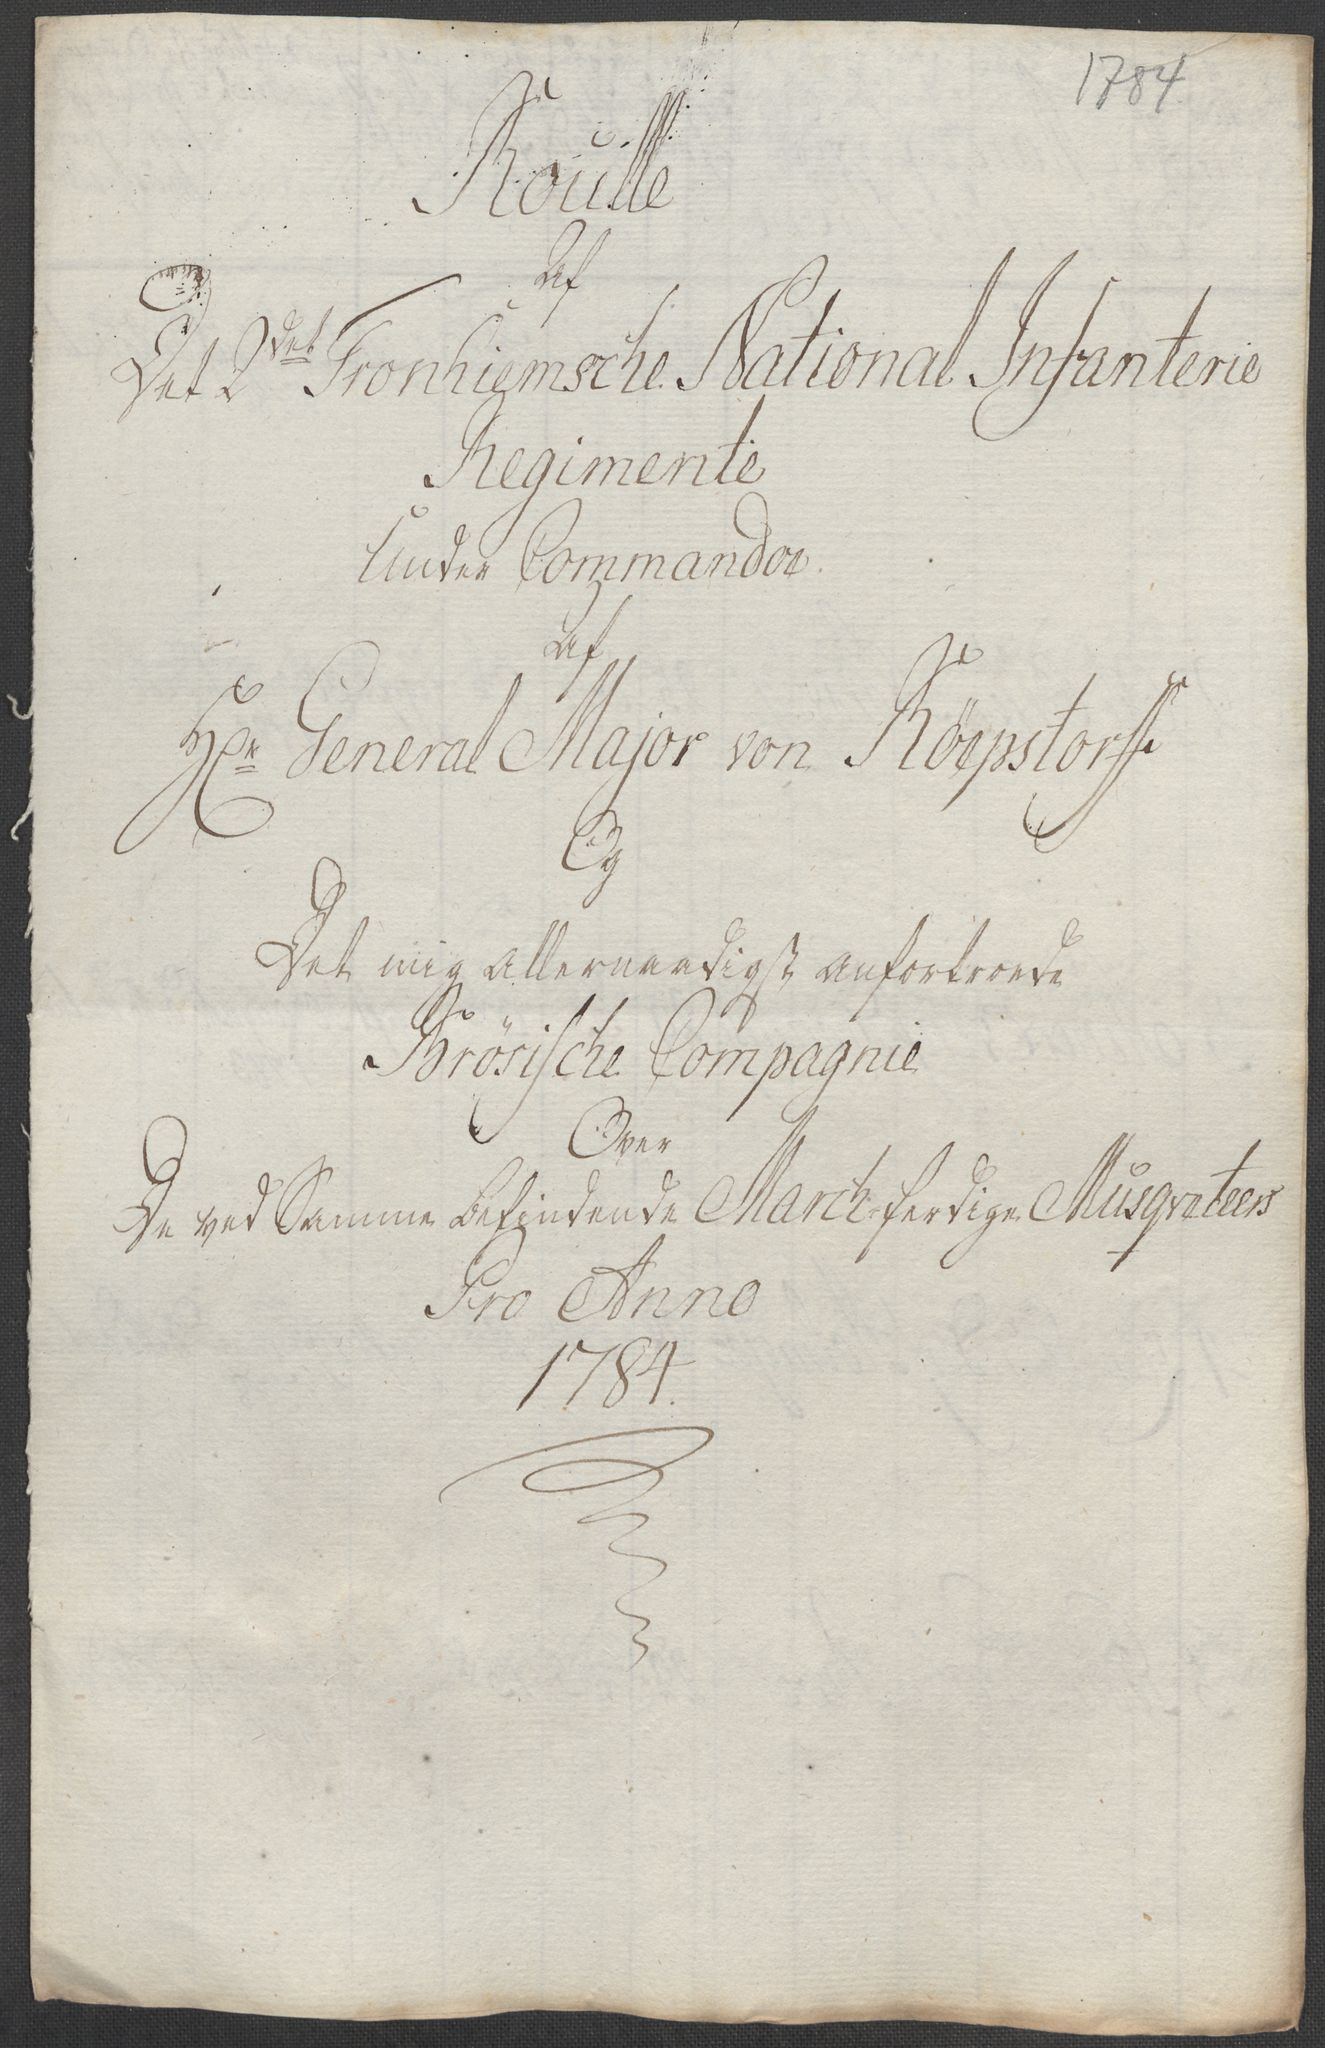 1784
Roulle
Af
Det 2det Tronhiemsche National Infanterie
Regimente
Under Commandoe
Af
Hr General Major von Röepstorff
Og
Det mig allernaadigst anfortroede
Brösische Compagnie
Over
De ved Samme befindende March-ferdige Musqveteers
Pro Anno
1784.